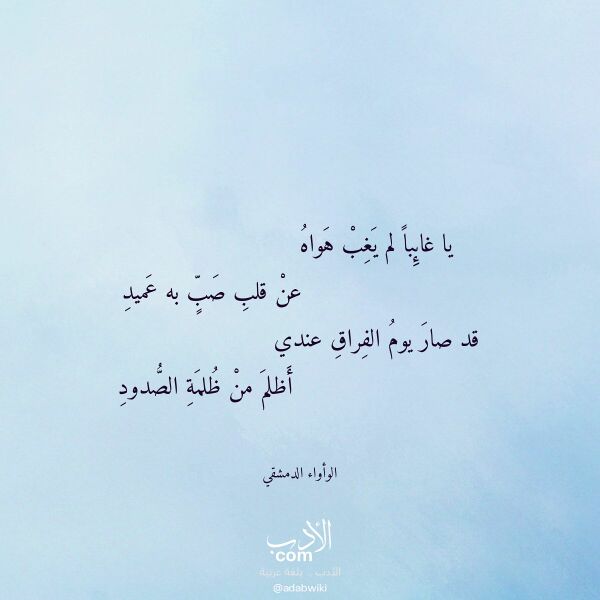 يا غائِباً لم يَغِبْ هَواهُ
عنْ قلبِ صَبٍّ به عَميدِ
قد صارَ يومُ الفِراقِ عندي
أَظلمَ منْ ظُلمَةِ الصُّدودِ
الوأواء الدمشقي
الأدب
com
الأدب .. بلغة عربية
@adabwiki